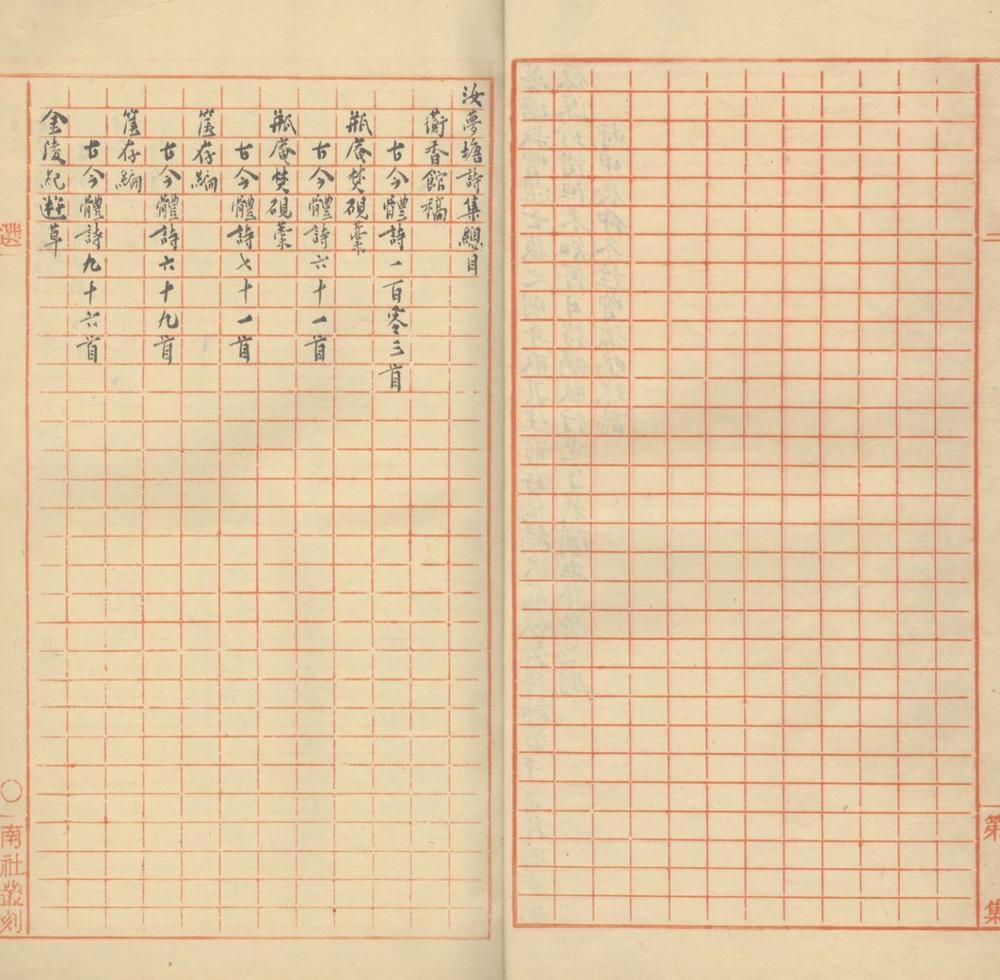 第 集
汝夢塘詩集總目
蘅香館稿
古今體詩一百零三首
瓶庵焚硯藁
古今體詩六十一首
瓶庵焚硯藁
古今體詩七十一首
篋存編
古今體詩六十九首
篋存編
古今體詩九十六首
金陵紀遊草
選
南社叢刻